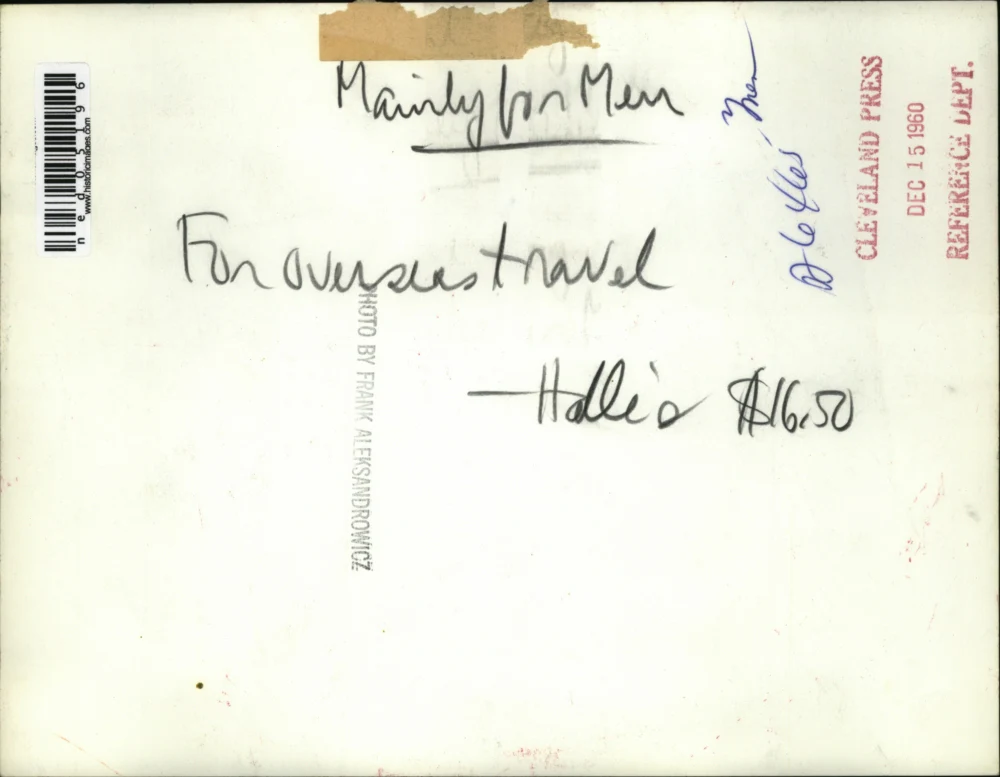 Mainly for Men
For overseas travel
—Halle's $16.50
Clothes, Men
CLEVELAND PRESS
DEC 15 1960
REFERENCE DEPT.
PHOTO BY FRANK ALEKSANDROWICZ
www.historicimages.com
ned05196